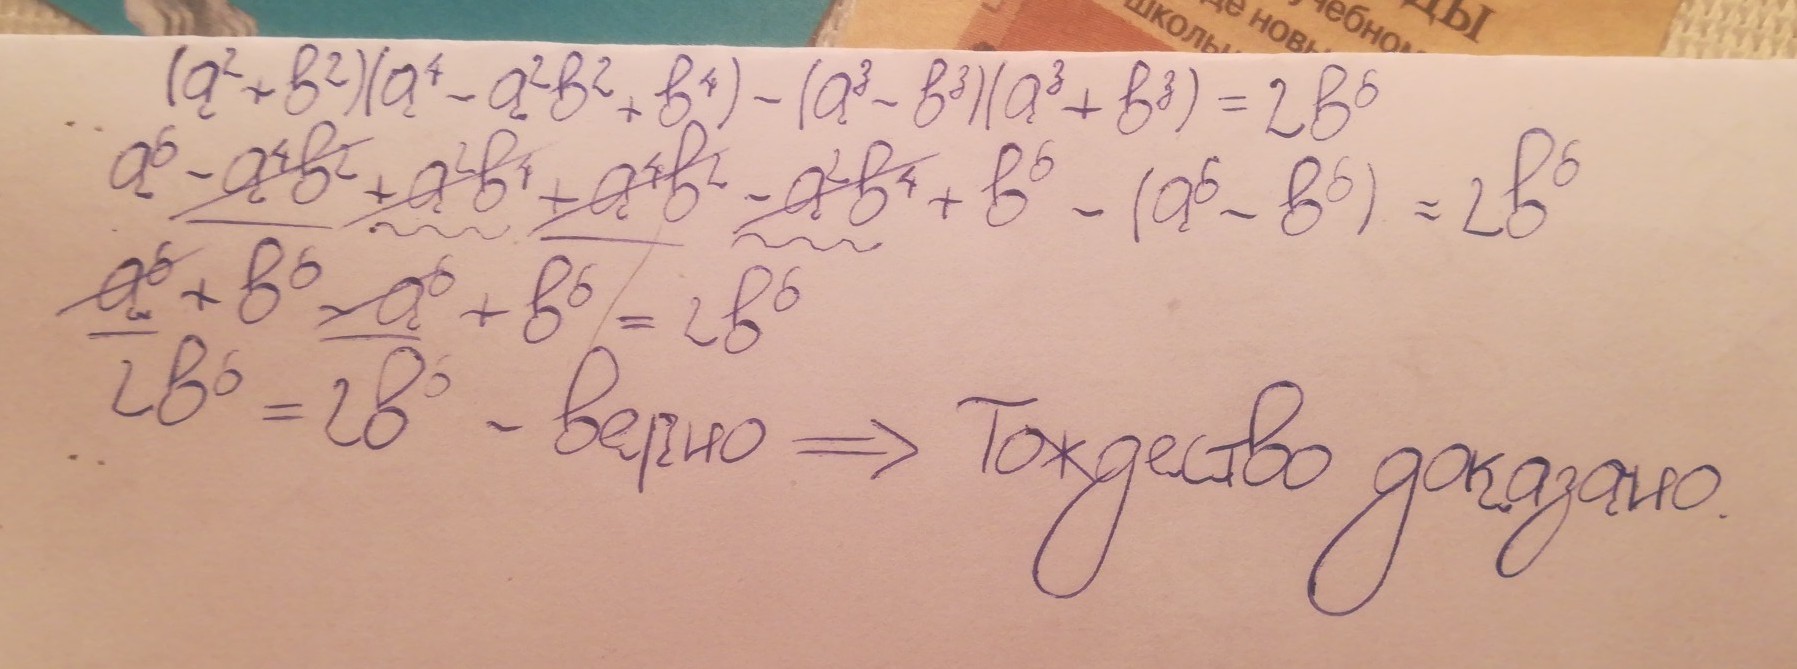 ДЫ
учебном
де новы
школьн
(a² + b²)(a⁴ - a²b² + b⁴) - (a³ - b³)(a³ + b³) = 2b⁶
a⁶ - a⁴b² + a²b⁴ + a⁴b² - a²b⁴ + b⁶ - (a⁶ - b⁶) = 2b⁶
a⁶ + b⁶ - a⁶ + b⁶ = 2b⁶
2b⁶ = 2b⁶ - верно ⟹ Тождество доказано.